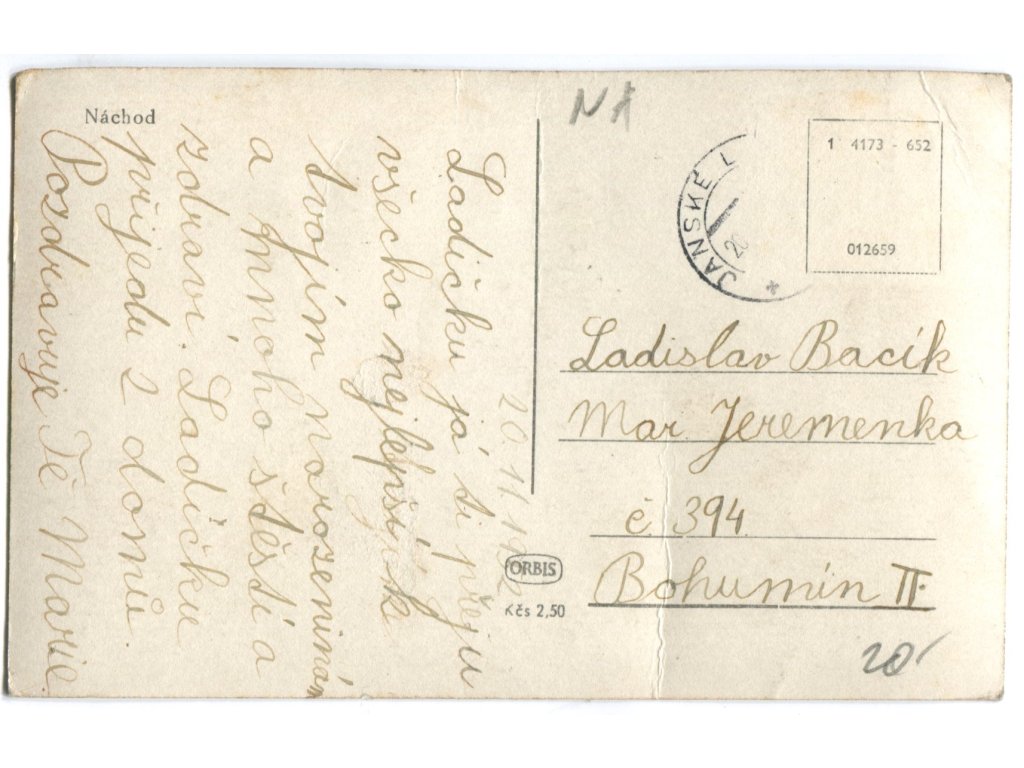 Náchod
20. 11. 1952
Ladičku já ti přeju
všecko nejlepšínk
tvojím narozeninám
a mnoho štěstí a
zdraví. Ladičku
přijedu 2 domů.
Pozdravuje Tě Marie
NA
JANSKÉ L
20
1 4173 - 652
012659
Ladislav Bacík
Mar. Jeremenka
č 394
Bohumín II.
ORBIS
Kčs 2,50
20